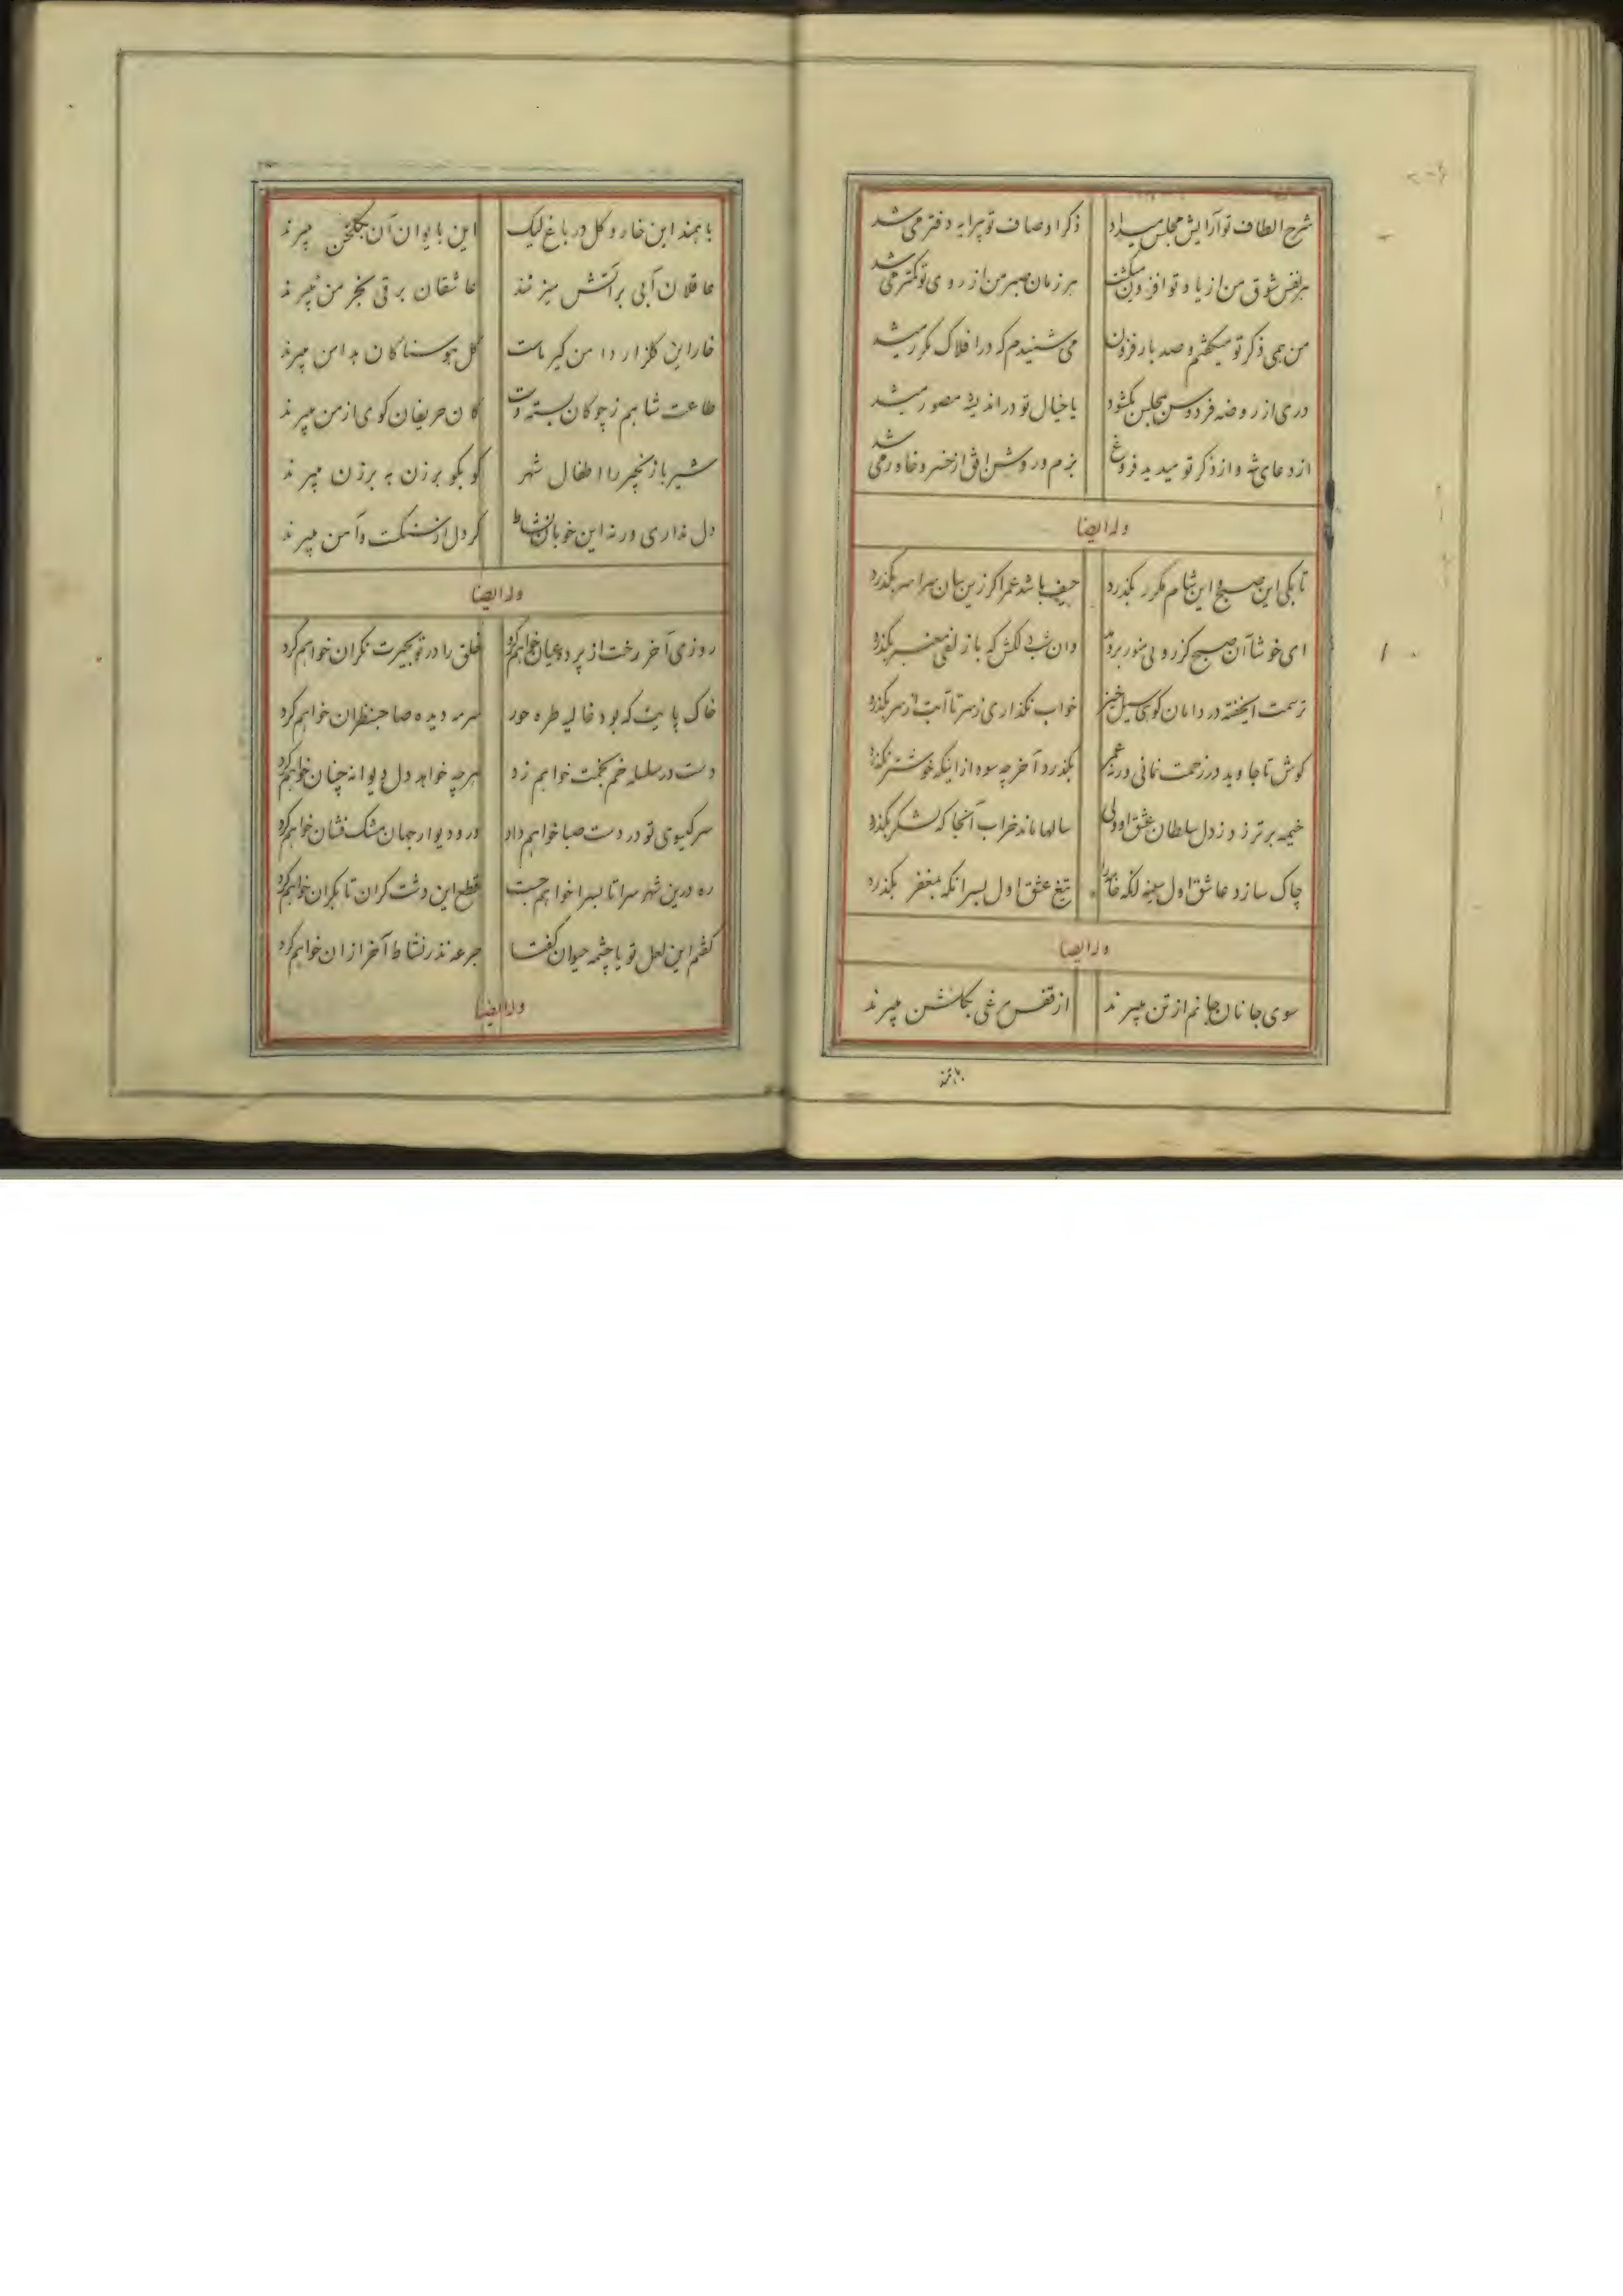 شرح الطاف تو آرایش مجلس میداد ذکر اوصاف تو پیرایه دفتر می شد
هر نفس شوق من از یاد تو افزون میکشت هر زمان صبر من از روی تو کمتر می شد
من همی ذکر تو میکفتم و صد بار فزون می شنیدم که در افلاک مکرر میشد
دری از روضه فردوس بمجلس بکشود یا خیال تو در اندیشه مصور میشد
از دعای شه و از ذکر تو میدید فروغ بزم ور روشن افق از خسرو خاور می شد
وله ایضا
تا بکی این صبح و این شام مکرر بکذرد حیف باشد عمر اکر زین سان سراسر بکذرد
ای خوشا آن صبح کز رویی منور بردمد وان شب دلکش که با زلفی معنبر بکذرد
ترسمت ای خفته در دامان کوی سیل خیز خواب نکذاری ز سر تا آبت از سر بکذرد
کوش تا جاوید در زحمت نمانی ورنه عمر بکذرد آخر چه سود از اینکه خوشتر بکذرد
خیمه برتر زد ز دل سلطان عشق او ولی سالها ماند خراب آنجا که لشکر بکذرد
چاک سازد عاشق اول سینه تیغ عشق اول بسر انکه بمغفر بکذرد
وله ایضا
سوی جانان جانم از تن میبرند از قفس مرغی بکلشن میبرند
با همند
با همند این خار و کل در باغ لیک این بایوان آن بکلخن میبرند
عاقلان آبی بر آتش میزنند عاشقان برقی بخرمن میبرند
خار این کلزار دامن کیر ماست کل هوسناکان بدامن میبرند
طاعت شاهم ز چوکان بسته دست کان حریفان کوی از من میبرند
شیر باز نچیر را اطفال شهر کو بکو برزن به برزن میبرند
دل نداری ورنه این خوبان نشاط کر دل از سنکست و آهن میبرند
وله ایضا
روزی آخر رخت از پرده عیان خواهم کرد خلق را در تو بحیرت نکران خواهم کرد
خاک پایت که بود غالیه طره حور سرمه دیده صاحبنظران خواهم کرد
دست در سلسله خم بخمت خواهم زد هر چه خواهد دل دیوانه چنان خواهم کرد
سر کیسوی تو در دست صبا خواهم داد در و دیوار جهان مشک فشان خواهم کرد
ره درین شهر سرا تا بسرا خواهم جست قطع این دشت کران تا بکران خواهم کرد
کفتم این لعل تو یا چشمه حیوان کفتا جرعه نذر نشاط آخر از ان خواهم کرد
وله ایضا